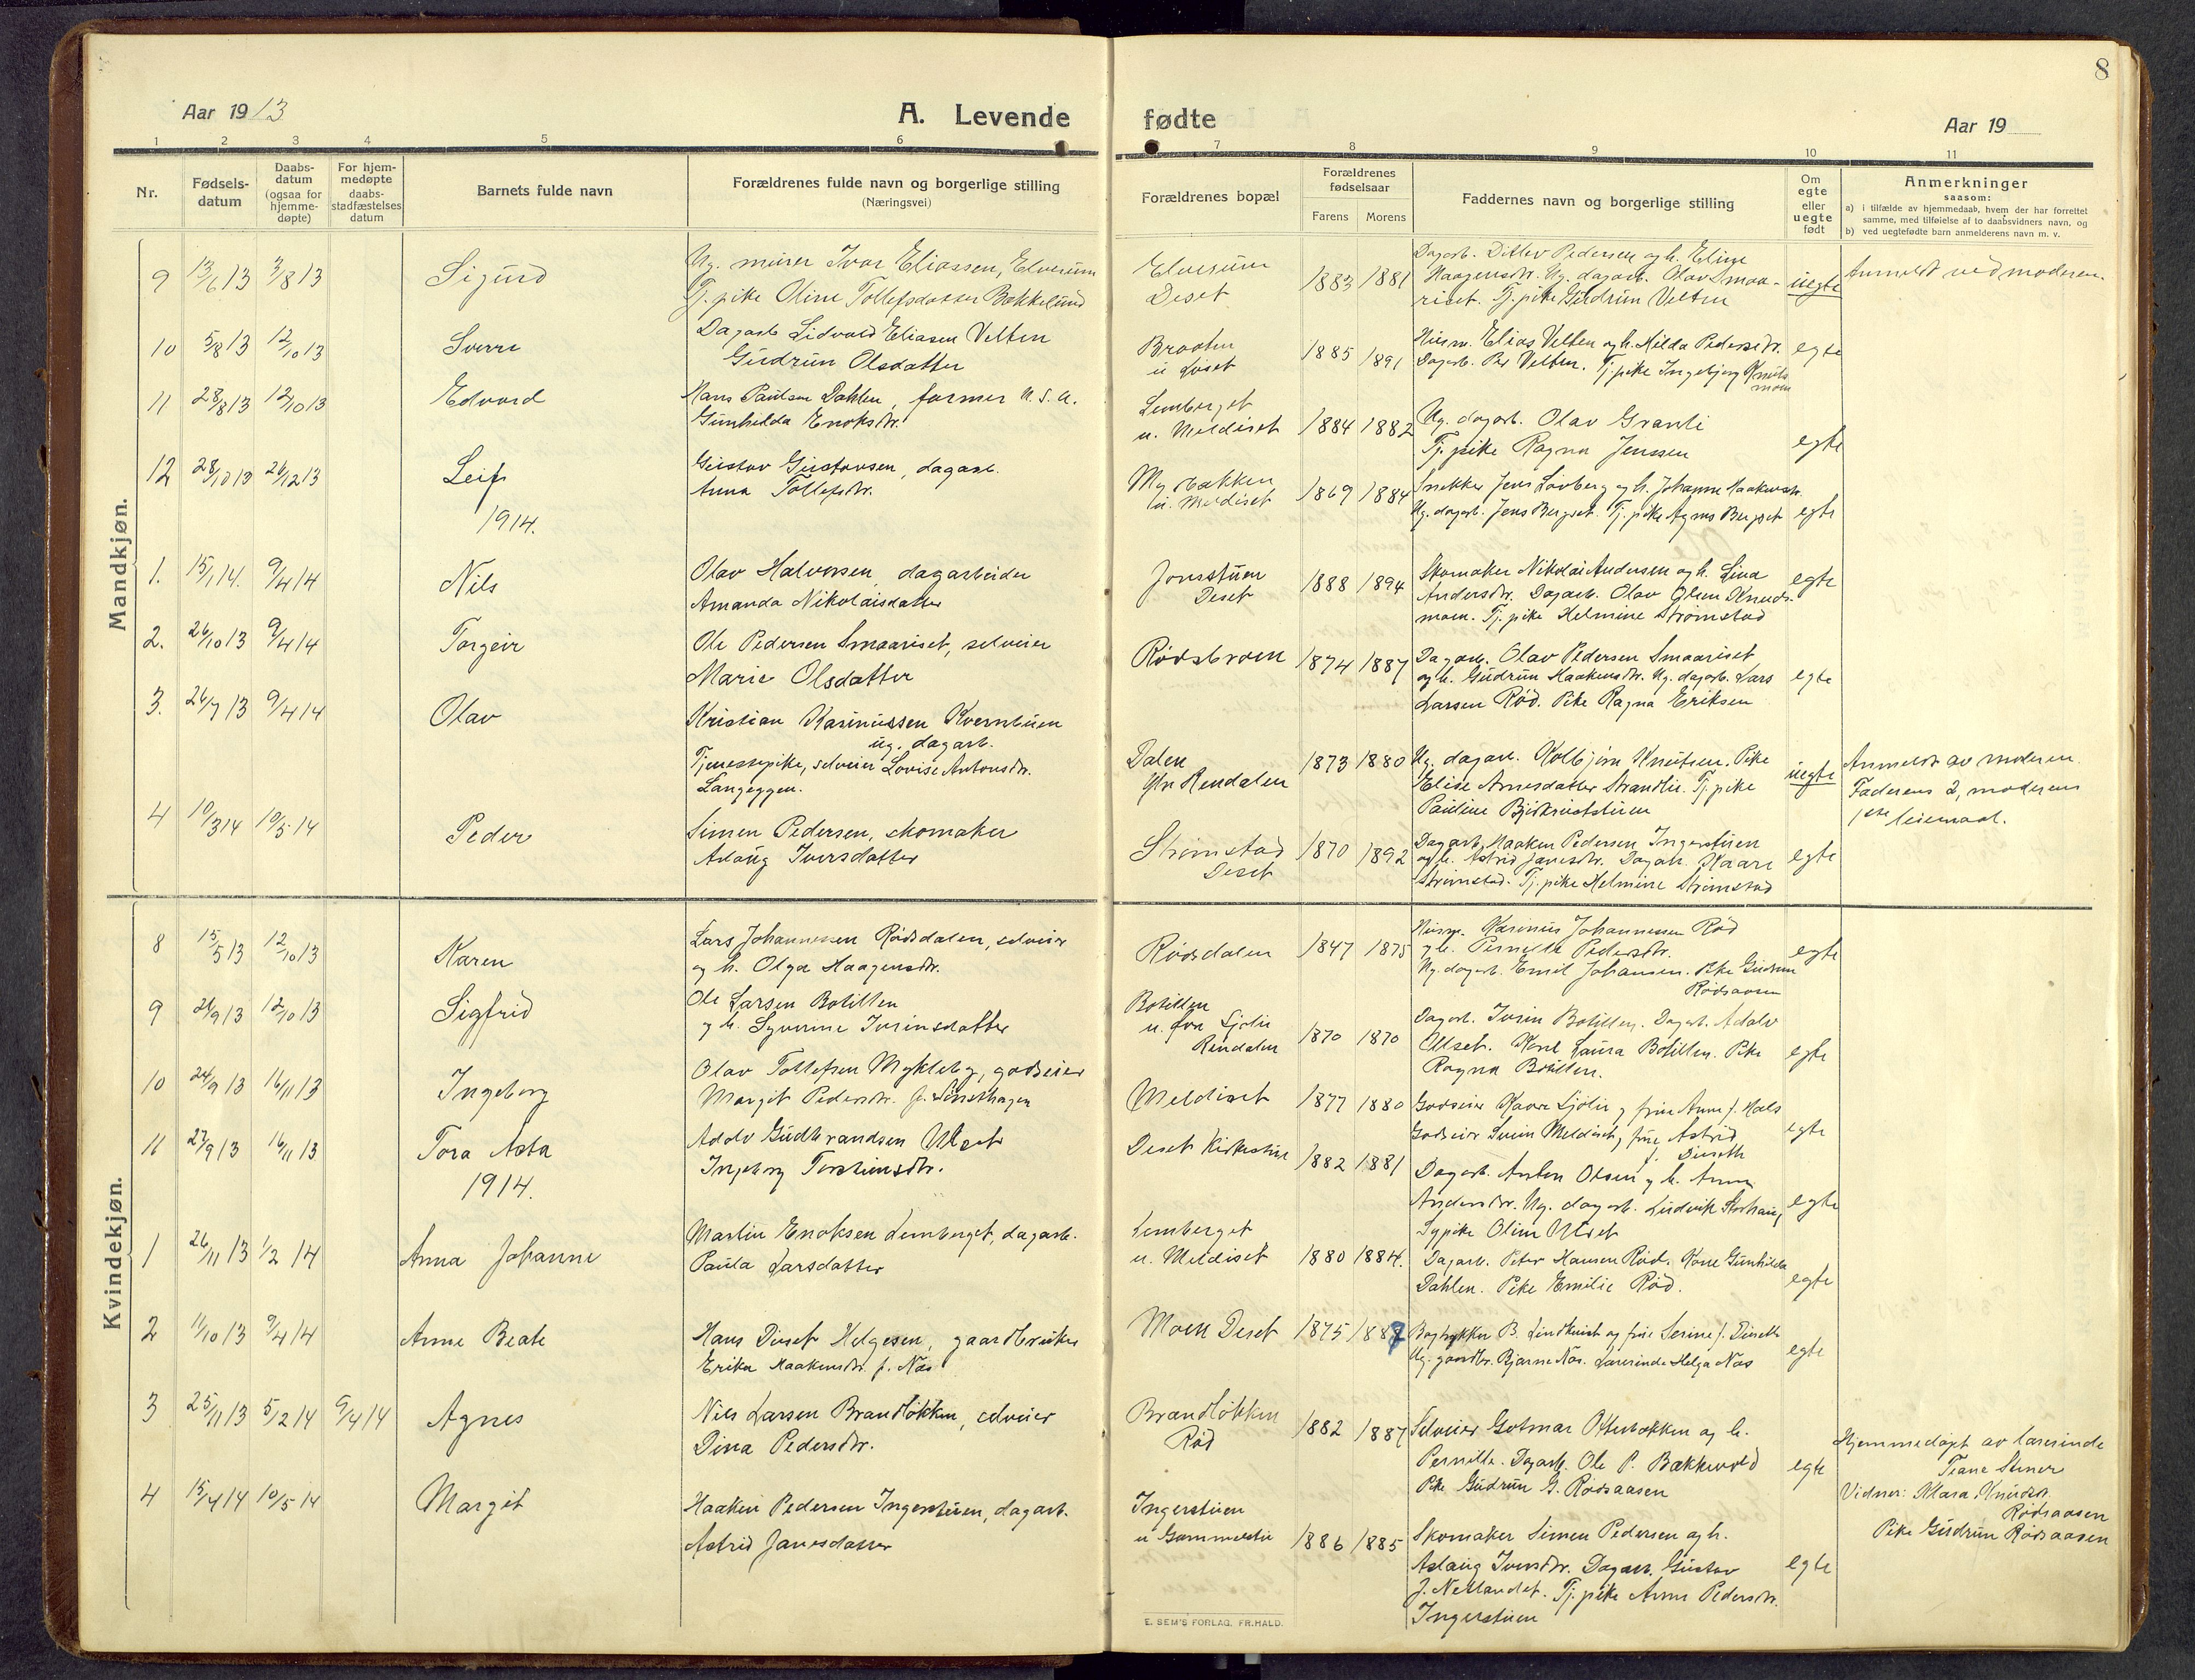 8
Aar 1913
A. Levende
fødte
Aar 19
1 2 3 4 5 6 7 8 9 10 11
Nr.
Fødsels-
datum
Daabs-
datum
(ogsaa for
hjemme-
døpte)
For hjem-
medøpte
daabs-
stadfæstelses
datum
Barnets fulde navn
Forældrenes fulde navn og borgerlige stilling
(Næringsvei)
Forældrenes bopæl
Forældrenes
fødselsaar
Farens Morens
Faddernes navn og borgerlige stilling
Om
egte
eller
uegte
født
Anmerkninger
saasom:
a) i tilfælde av hjemmedaab, hvem der har forrettet
samme, med tilføielse av to daabsvidners navn, og
b) ved uegtefødte barn anmelderens navn m. v.
Mandkjøn.
9 13/6 13 3/8 13 Sigurd
Ug. murer Ivar Eliassen, Elverum
Tj. pike Oline Tollefsdatter Bækkelund
Elverum
Deset
1883 1881
Dagarb. Ditlev Pedersen og h. Eline
Haagensdr. Ug. dagarb. Olav Smaa-
riset. Tj. pike Gudrun Velten
uegte
Anmeldt ved moderen.
10 5/8 13 12/10 13 Sverre
Dagarb. Sidvald Eliasen Velten
Gudrun Olsdatter
Braaten
1885 1891
Husm. Elias Velten og h. Hilda Pedersdr.
Dagarb. Per Velten. Tj. pike Ingebjørg Knuts
moen
egte
11 28/8 13 12/10 13 Edvard
Hans Paulsen Dahlen, farmer U.S.A.
Gunhilda Enoksdr.
Lemberget
u. Meldiset
1884 1882
Ug. dagarb. Olav Granli
Tj. pike Ragna Jenssen
egte
12 28/10 13 26/12 13 Leif
Gustav Gustavsen, dagarb.
Anna Tollefsdr.
u. Meldiset
1869 1884
Snekker Jens Løvberg og h. Johanne Haakensdr.
Ug. dagarb. Jens Bergset. Tj. pike Agnes Bergset
egte
1914.
1. 15/1 14. 9/4 14 Nils
Olav Halvorsen, dagarbeider
Amanda Nikolaisdatter
Jonsstuen
Deset
1888 1894
Skomaker Nikolai Andersen og h. Lina
Andersdr. Dagarb. Olav Olsen Knuds-
moen. Tj. pike Helmine Strømstad
egte
2. 26/10 13 9/4 14 Torgeir
Ole Pedersen Smaariset, selveier
Marie Olsdatter
Rødsbroen
1874 1887
Dagarb. Olav Pedersen Smaariset
og h. Gudrun Haakensdr. Ug. dagarb. Lars
Larsen Rød. Pike Ragna Eriksen
egte
3. 26/7 13 9/4 14 Olav
Kristian Rasmussen Kverntuen
ug. dagarb.
Tjenestepike, selveier Lovise Antonsdr.
Langeggen.
Dalen
Ytr. Rendalen
1873 1880
Ug. dagarb. Kolbjørn Knutsen. Pike
Elise Arnesdatter Strandlie. Tj. pike
Pauline
uegte
Anmeldt av moderen.
Faderens 2, moderens
1ste leiermaal.
4 10/3 14 10/5 14 Peder
Simen Pedersen, skomaker
Aslaug Iversdatter
Strømstad
Deset
1870 1892
Dagarb. Haaken Pedersen Ingerstuen
og h. Astrid Janesdr. Dagarb. Kaare
Strømstad. Tj. pike Helmine Strømstad
egte
Kvindekjøn.
8 15/5 13 12/10 13 Karen
Lars Johannesen Rødsdalen, selveier
og h. Olga Haagensdr.
Rødsdalen
1847 1875
Husm. Karinius Johannessen Rød
og h. Pernille Pedersdr.
Ug. dagarb. Emil Johansen. Pike Gudrun
Rødsaasen
egte
9 21/9 13 12/10 13 Sigfrid
Ole Larsen Botilten
og h. Syverine Iversdatter
Botilten
Rendalen
1870 1870
Dagarb. Iver Botilten. Dagarb. Adolv
Ullset. Kone Laura Botilten. Pike
Ragna Botilten.
egte
10 24/9 13 16/11 13 Ingeborg
Olav Tollefsen Mykleby, godseier
Margit Pedersdr.
Meldiset
1877 1880
Godseier Kaare Sjølie og frue Anne f. Hals
Godseier Svein Meldiset og frue Astrid
f. Diseth
egte
11 27/9 13 16/11 13 Tora Asta
Adolv Gudbrandsen Ulset
Ingeborg Torsteinsdr.
Deset Kirkestue
1882 1881
Dagarb. Anton Olsen og h. Anna
Andersdr. Ug. dagarb. Ludvik Storhaug
Sypike Oline Ulset
egte
1914.
1 26/11 13 1/2 14 Anna Johanne
Martin Enoksen Lemberget, dagarb.
Paula Larsdatter
Lemberget
u. Meldiset
1880 1884.
Dagarb. Peter Hansen Rød. Kone Gunhilda
Dahlen. Pike Emilie Rød.
egte
2 11/10 13 9/4 14 Anne Beate
Hans Diset Helgesen, gaardbruker
Erika Haakensdr. f. Næs
Moen Deset
1875 1887
Bogtrykker B. Lindkvist og frue Serine f. Disette
Ug. gaardbr. Bjarne Næs. Lærerinde Helga Næs
egte
3 25/11 13 5/2 14 9/4 14 Agnes
Nils Larsen Brandløkken, selveier
Dina Pedersdr.
Brandløkken
Rød
1882 1887
Selveier Gotmar Otterbækken og h.
Pernille. Dagarb. Ole P. Bækkevold
Pike Gudrun G. Rødsaasen
egte
Hjemmedøpt av lærerinde
Vidner: Klara Knudsdr.
Rødsaasen
Pike Gudrun Rødsaasen
4 15/4 14 10/5 14 Margit
Haaken Pedersen Ingerstuen, dagarb.
Astrid Janesdatter
Ingerstuen
u Gammelstu
1886 1885
Skomaker Simen Pedersen og h.
Aslaug Iversdr. Dagarb. Gustav
J. Netlandet. Tj. pike Anne Pedersdr.
Ingerstuen
egte
E. SEM'S FORLAG, FR.HALD.